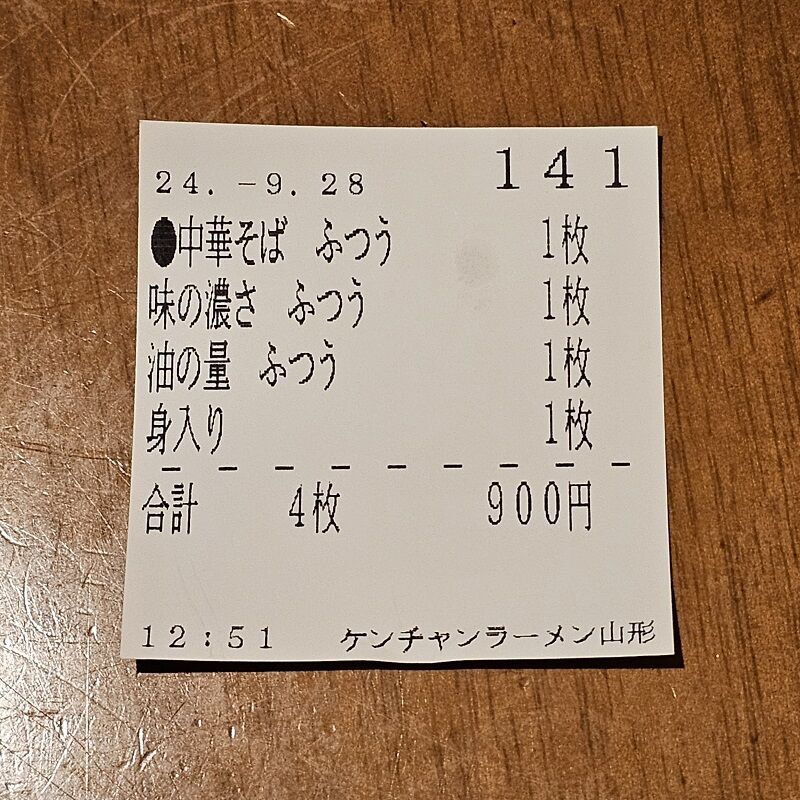 24.-9.28 141
●中華そば ふつう 1枚
味の濃さ ふつう 1枚
油の量 ふつう 1枚
身入り 1枚
合計 4枚 900円
12:51 ケンチャンラーメン山形